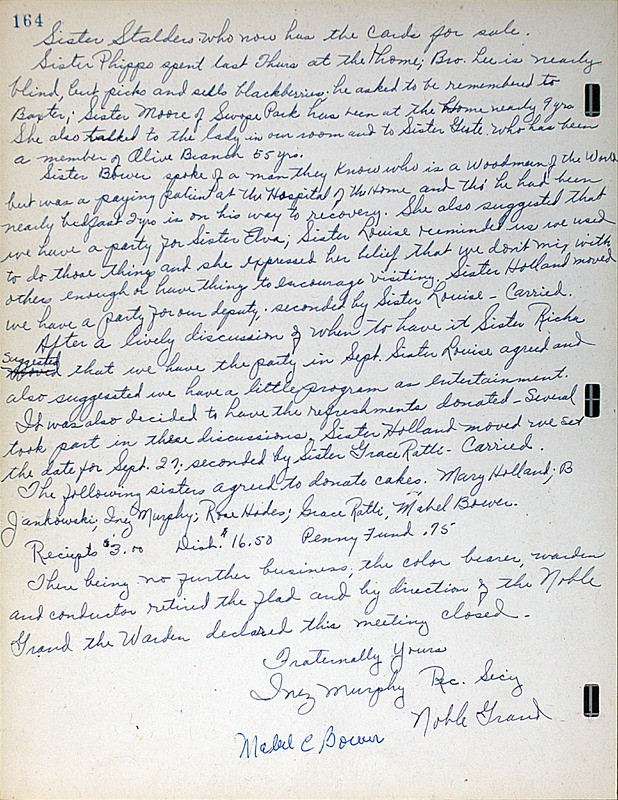 164
Sister Stalders who now has the Cards for sale.
Sister Phipps spent last Thurs at the Home; Bro. Lee is nearly
blind, but picks and sells blackberries. he asked to be remembered to
Baxter; Sister Moore of Swope Park has been at the Home nearly 9 yrs
She also talked to the lady in our room and to Sister who has been
a member of Olive Branch 55 yrs.
Sister Bower spoke of a man they know who is a Woodman of the World
but was a paying patient at the Hospital of the Home and tho' he had been
nearly bedfast 2 yrs is on his way to recovery. She also suggested that
we have a party for Sister Elva; Sister Louise reminded us we used
to do those thing and she expressed her belief that we don't mix with
others enough or have thing to encourage visiting. Sister Holland moved
we have a party for our deputy. seconded by Sister Louise - Carried.
After a lively discussion of when to have it Sister Richa
Suggested
Moved that we have the party in Sept. Sister Louise agreed and
also suggested we have a little program as entertainment.
It was also decided to have the refreshments donated - Several
took part in these discussions. Sister Holland moved we set
the date for Sept. 27; seconded by Sister Grace Ratti - Carried.
The following sisters agreed to donate cakes. Mary Holland; B
Jankowski, Inez Murphy; Rose Hodes; Grace Ratti, Mabel Bower.
Reciepts $3.00 Disb. $16.50 Penny Fund .75
There being no further business; the color bearer, warden
and conductor retired the flad and by direction of the Noble
Grand the Warden declared this meeting closed.
Fraternally Yours
Inez Murphy Rec. Secy
Noble Grand
Mabel C Bower